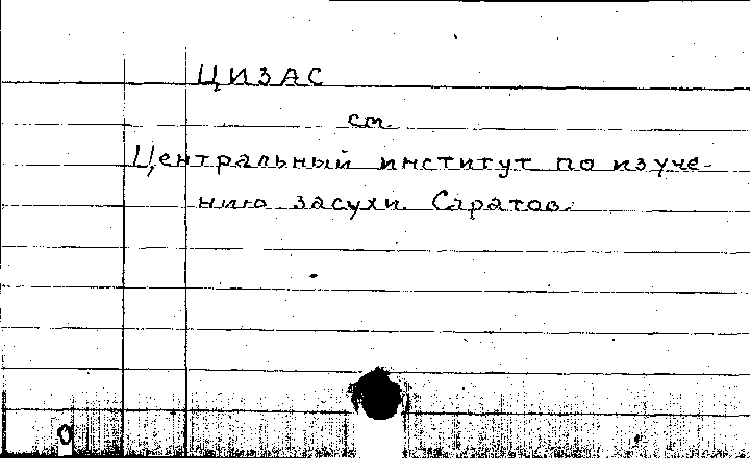 ЦИЗАС
см.
Центральный институт по изуче-
нию засухи. Саратов.
0